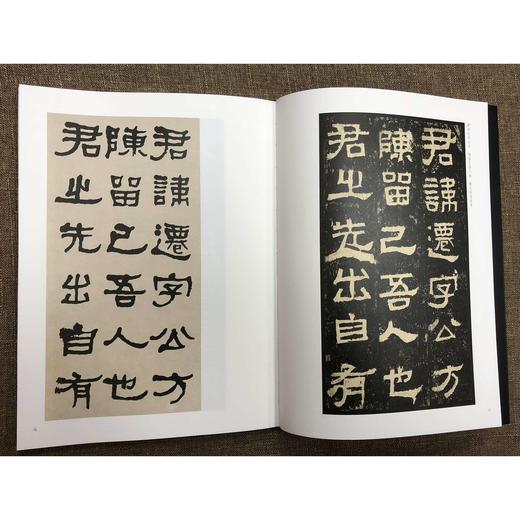 君諱遷字公方
陳留己吾人也
君之先出自有
君諱遷字公方
陳留己吾人也
君之先出自有